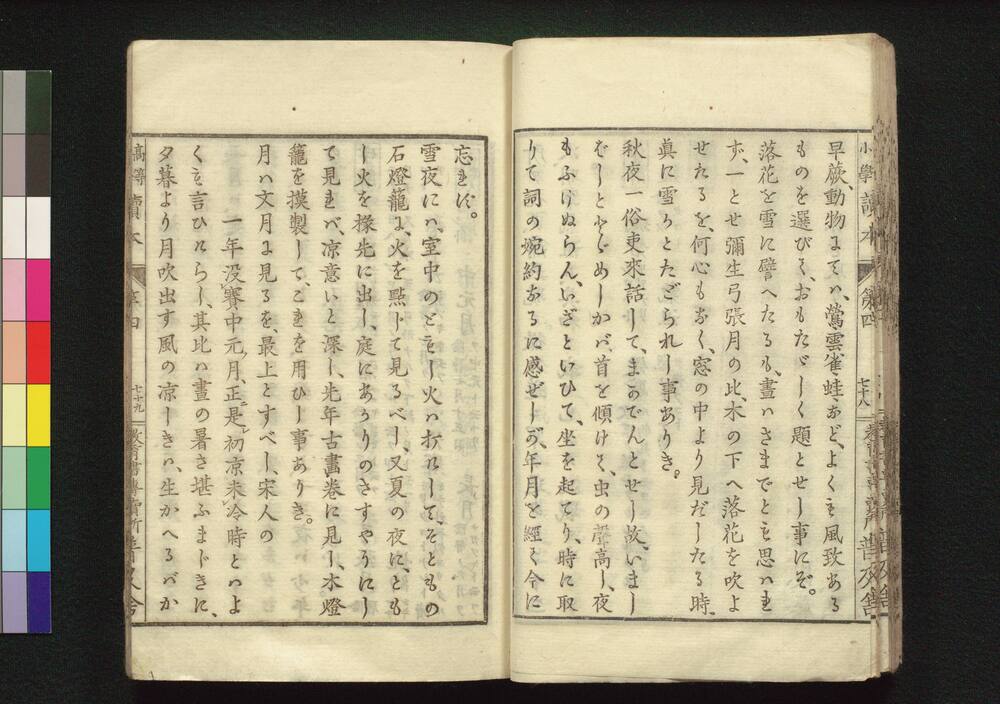 早蕨、動物にてハ、鶯雲雀蛙など、よくも風致ある
ものを選びて、おもたゞしく題とせし事にぞ。
落花を雪に譬へたるも、晝ハさまでとも思ハれ
ず、一とせ彌生弓張月の比、木の下へ落花を吹よ
せたるを、何心もなく、窓の中より見だしたる時、
眞に雪かとたどられし事ありき。
秋夜一俗吏來話して、まかでんとせし故、いまし
ばしととゞめしかバ首を傾けて、虫の聲高し、夜
もふけぬらん、いざといひて、坐を起てり、時に取
りて詞の婉約なるに感ぜしが、年月を經て今に
小學讀本
第四
七十八
普及舍
忘れず。
雪夜にハ、室中のともし火ハ打けして、そともの
石燈籠に、火を點じて見るべし、又夏の夜にとも
し火を椽先に出し、庭にあかりのさすやうにし
て見れバ、凉意いと深し、先年古畫卷に見し、木燈
籠を摸製して、これを用ひし事ありき。
月ハ文月に見るを、最上とすべし、宋人の
一年没賽中元月、正是初凉未冷時とハよ
くも言ひけらし、其比ハ晝の暑さ堪ふまじきに、
夕暮より月吹出す風の凉しきハ、生かへるバか
高等讀本
卷四
七十九